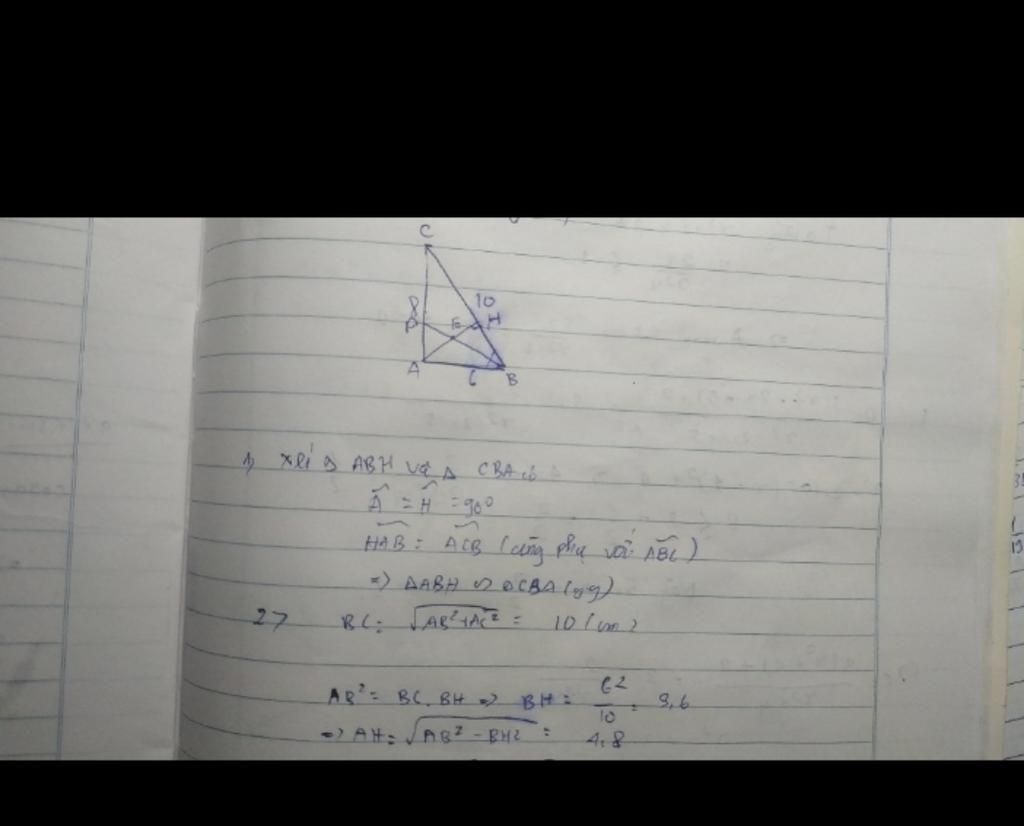 C
8
10
D
E
H
A
6
B
1) Xét Δ ABH và Δ CBA có
Â = Ĥ = 90°
HAB = ACB (cùng phụ với ABC)
=> ΔABH ∽ ΔCBA (gg)
2> BC = √AB²+AC² = 10 (cm)
AB² = BC.BH => BH = 6²/10 = 3,6
=> AH = √AB² - BH² = 4,8